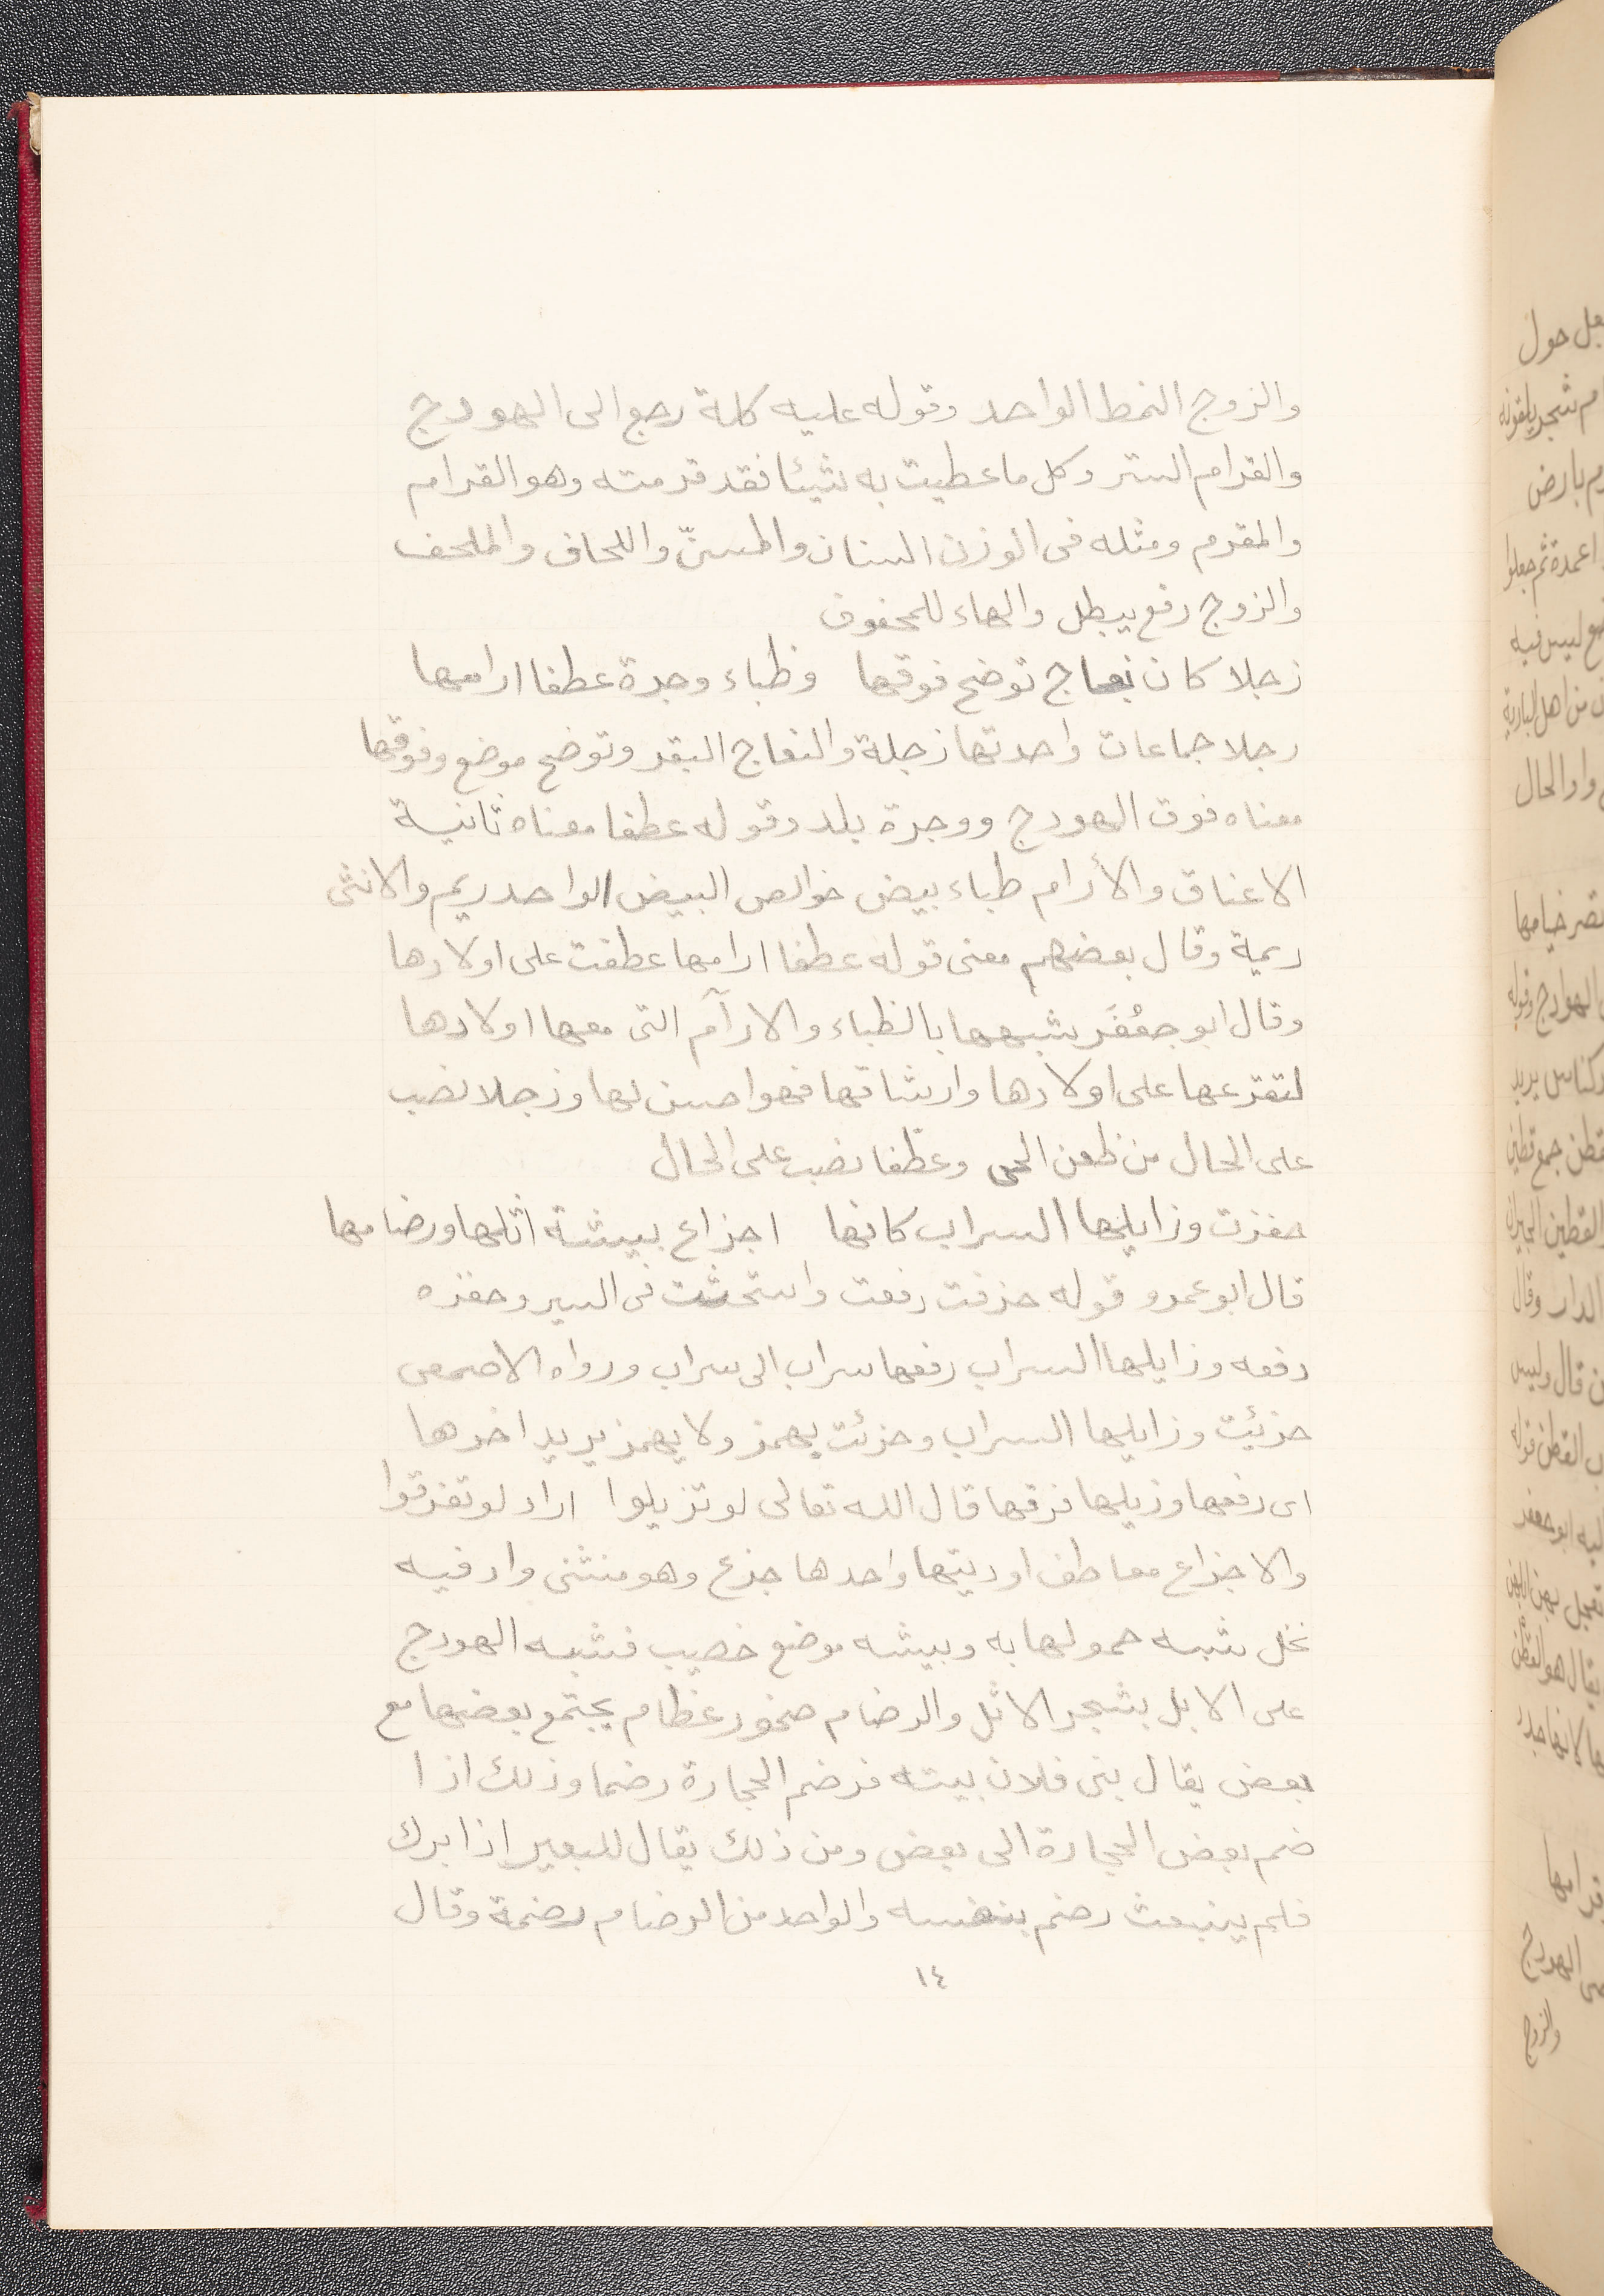 والزوج النمط الواحد وقوله عليه كلة رجع الى الهودج
والقرام الستر وكل ما عطيت به شيئا فقد قرمته وهو القرام
والمقرم ومثله فى الوزن السنان والمسنّ واللحاف والملحف
والزوج رفع بيطل والهاء للمحفوف
زجلا كان نعاج توضح فوقها وظباء وجرة عطفا ارامها
رجلا جماعات واحدتها زجلة والنعاج البقر وتوضح موضع وفوقها
معناه فوق الهودج ووجرة بلد وقوله عطفا معناه ثانية
الاعناق والأرام ظباء بيض خوالص البيض الواحد ريم والانثى
ريمة وقال بعضهم معنى قوله عطفا ارامها عطفت على اولادها
وقال ابو جعْفَر شبهها بالظباء والارآم التى معها اولادها
لتفزعها على اولادها وارشاقها فهو احسن لها وزجلا نصب
على الحال من ظعن الحى وعطفا نصب على الحال
حفزت وزايلها السراب كانها اجزاع بيشة اثلها ورضامها
قال ابو عمرو قوله حزفت دفعت واستحثت فى السير وحفزه
دفعه وزايلها السراب رفعها سراب الى سراب ورواه الاصمعى
حزئيت وزايلها السراب وحزئت يهمز ولا يهمز يريد اخرها
اى رفعها وزيلها فرقها قال الله تعالى لو تزيلوا اراد لو تفرقوا
والاجزاع معاطف اوديتها واحدها جزع وهو منثنى واد فيه
نخل شبه حمولها به وبيشه موضع خصيب فشبه الهودج
على الابل بشجر الاثل والرضام صخور عظام يجتمع بعضها مع
بعض يقال بنى فلان بيته فرضم الحجارة رضما وذلك اذا
ضم بعض الحجارة الى بعض ومن ذلك يقال للبعير اذا برك
فلم ينبعث رضم بنفسه والواحد من الرضام رضمة وقال
١٤